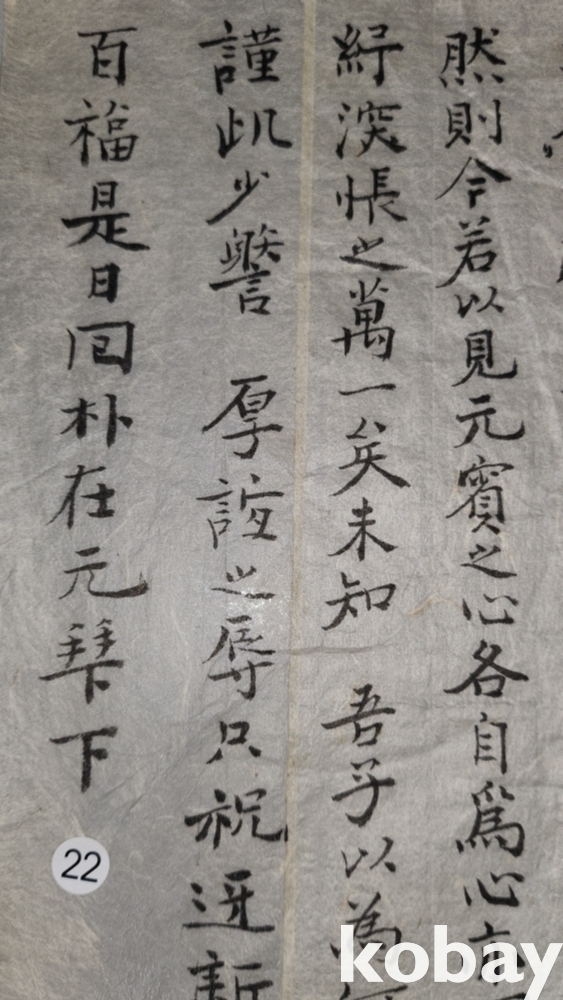 然則今若以見元賓之心各自爲心亦
紓深悵之萬一矣未知 吾子以為何
謹此少讐 厚誼之辱只祝迓新
百福是日回朴在元拜下
22
kobay